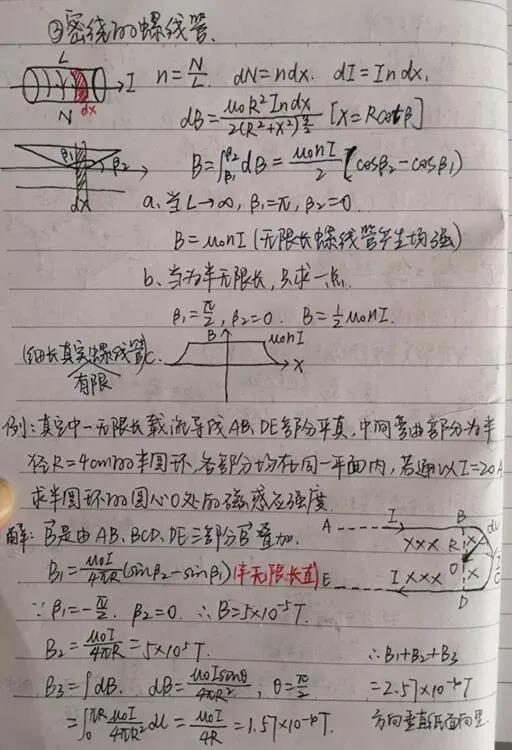 ③密绕的螺线管.
L I N dx
n = N/L. dN = ndx. dI = Indx.
dB = μ₀R²Indx / 2(R²+X²)^(3/2) [X = Rcotβ]
β₁ β₂ dx
B = ∫_β₁^β₂ dB = μ₀nI/2 (cosβ₂ - cosβ₁)
a. 当L→∞, β₁=π, β₂=0.
B = μ₀nI (无限长螺线管产生均强)
b. 当为半无限长, 只求一点.
β₁ = π/2, β₂ = 0. B = ½μ₀nI.
(细长真实螺线管) c. B μ₀nI X
有限
例: 真空中一无限长载流导线AB、DE部分平直, 中间弯曲部分为半
径R=4cm的半圆环, 各部分均在同一平面内, 若通以I=20A
求半圆环的圆心O处的磁感应强度.
解: B⃗是由AB、BCD、DE三部分B⃗叠加.
A I B dl
××× R ×
O C
E I ××× ×
D
B₁ = μ₀I/4πR (sinβ₂ - sinβ₁) (半无限长直)
∵ β₁ = -π/2. β₂ = 0. ∴ B = 5×10⁻⁵T.
B₂ = μ₀I/4πR = 5×10⁻⁵T.
∴ B₁+B₂+B₃
B₃ = ∫dB. dB = μ₀Isinθ/4πR², θ = π/2
= 2.57×10⁻⁴T
= ∫₀^πR μ₀I/4πR² dl = μ₀I/4R = 1.57×10⁻⁴T
方向垂直纸面向里.